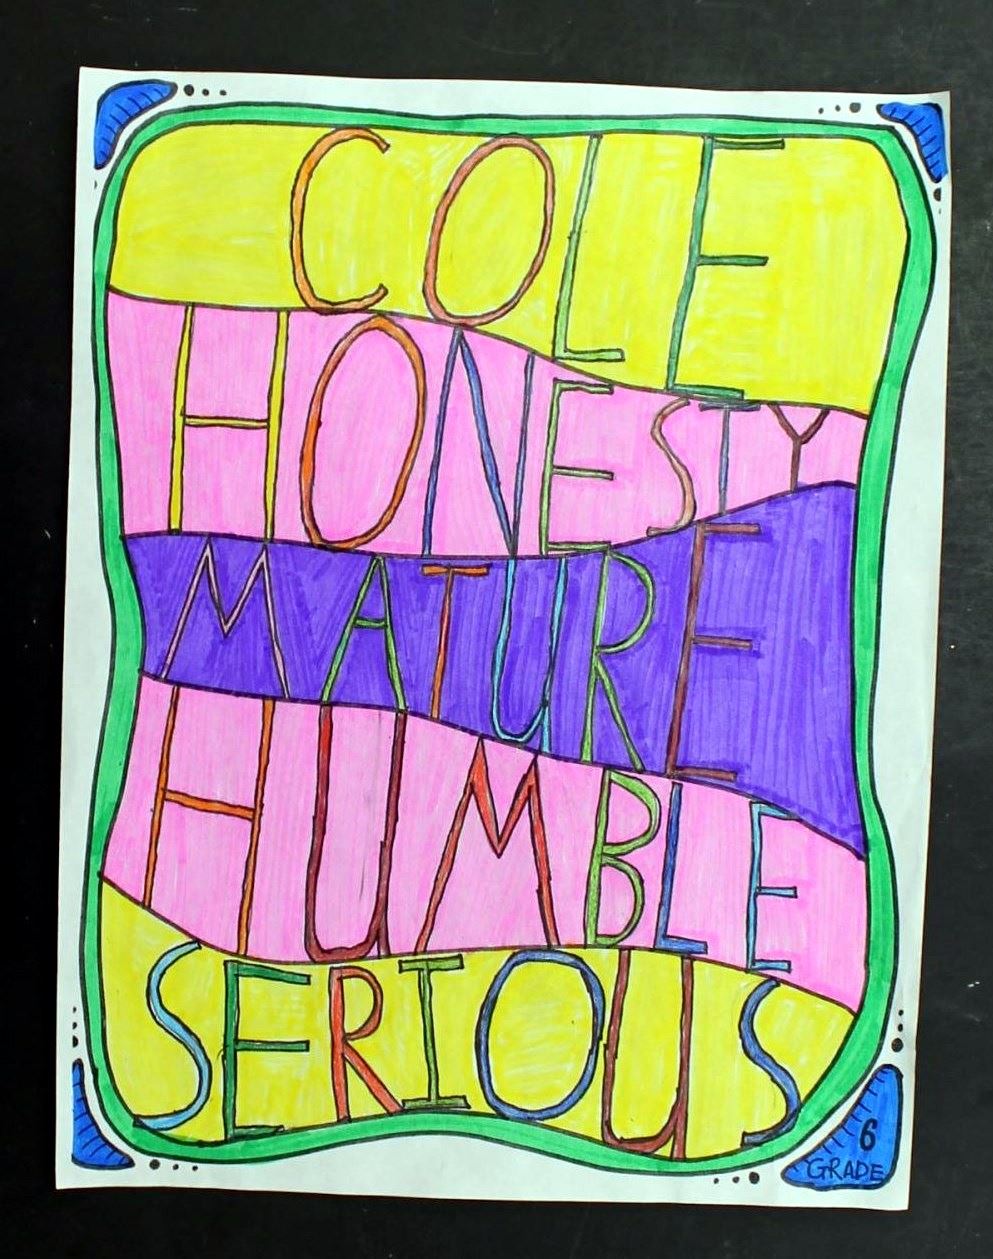 COLE
HONESTY
MATURE
HUMBLE
SERIOUS
6
GRADE